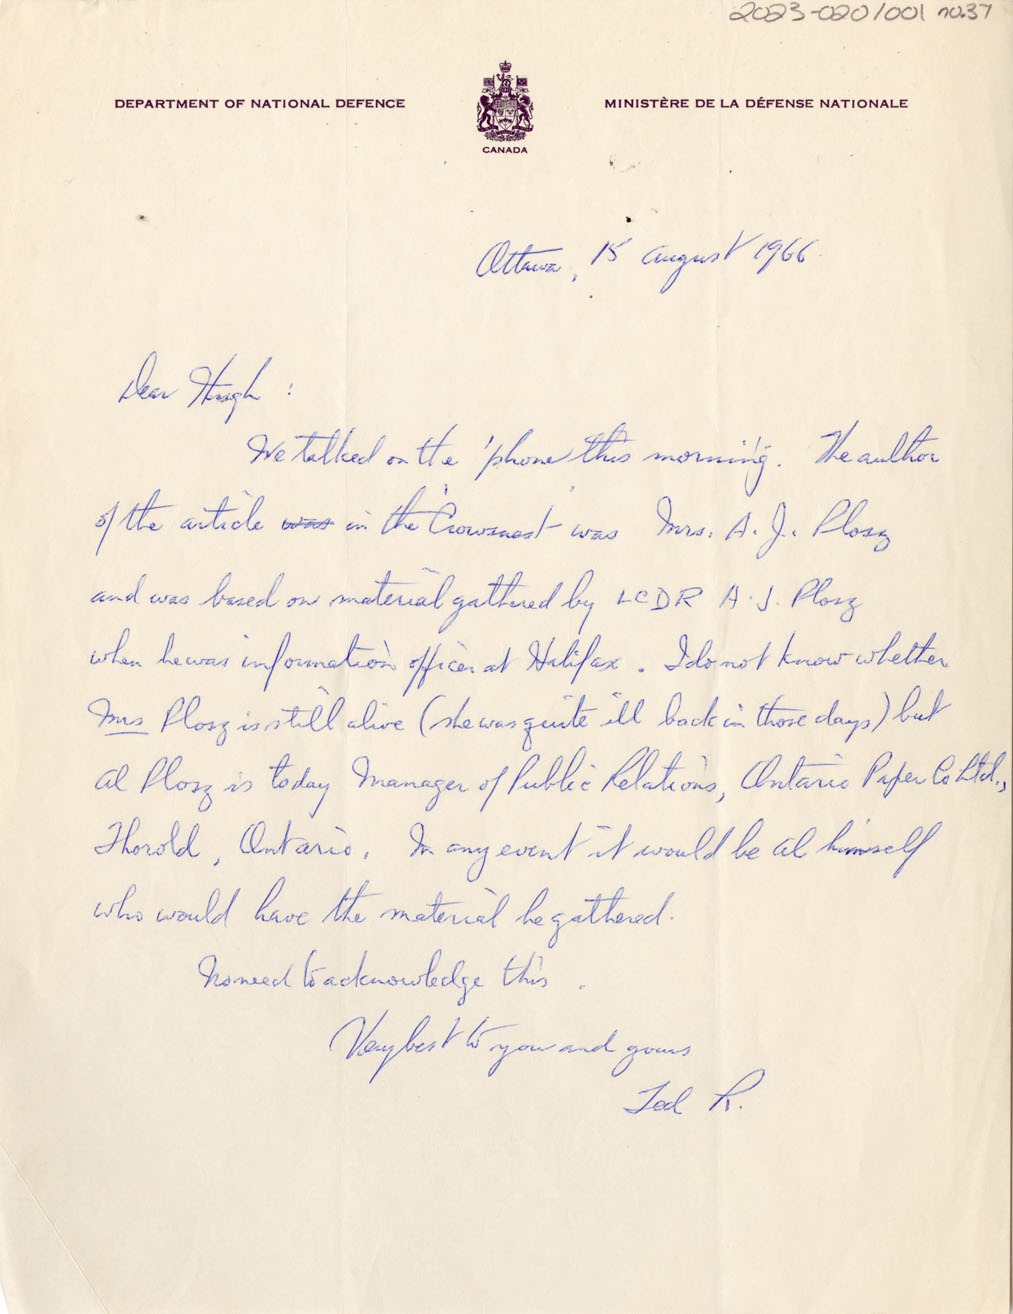 2023-020/001 no.37
DEPARTMENT OF NATIONAL DEFENCE
CANADA
MINISTÈRE DE LA DÉFENSE NATIONALE
Ottawa, 15 August 1966.
Dear Hugh :
We talked on the 'phone this morning. The author
of the article was in the 'Crowsnest' was Mrs. A. J. Plosz
and was based on material gathered by LCDR A. J. Plosz
when he was information officer at Halifax. I do not know whether
Mrs Plosz is still alive (she was quite ill back in those days) but
Al Plosz is today Manager of Public Relations, Ontario Paper Co Ltd.,
Thorold, Ontario. In any event it would be Al himself
who would have the material he gathered.
No need to acknowledge this.
Very best to you and yours
Ted R.